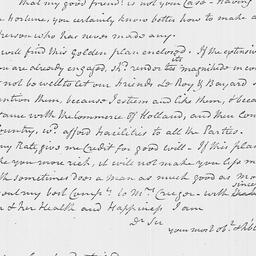 that my good friend! is not your Case - Having
a Fortune, you certainly know better how to make a
person who has never made any.
will find this Golden plan enclosed. If the extensive
on are already engaged, shd. render its the magnitude in con
not be well to let our friends Le Roy & Bayard
mention them, because I esteem and like them, & beca
came with the Commerce of Holland, and their Conn
Country, wd. afford facilities to all the Parties.
any Rate, give me Credit for good will - If this plan
ke you more rich, it will not make you less m
lth sometimes does a man as much good as mo
sent my best Compts. to Mrs. Cruger - with since
r & her Health and Happiness I am
Dr Sir
your most obt. &